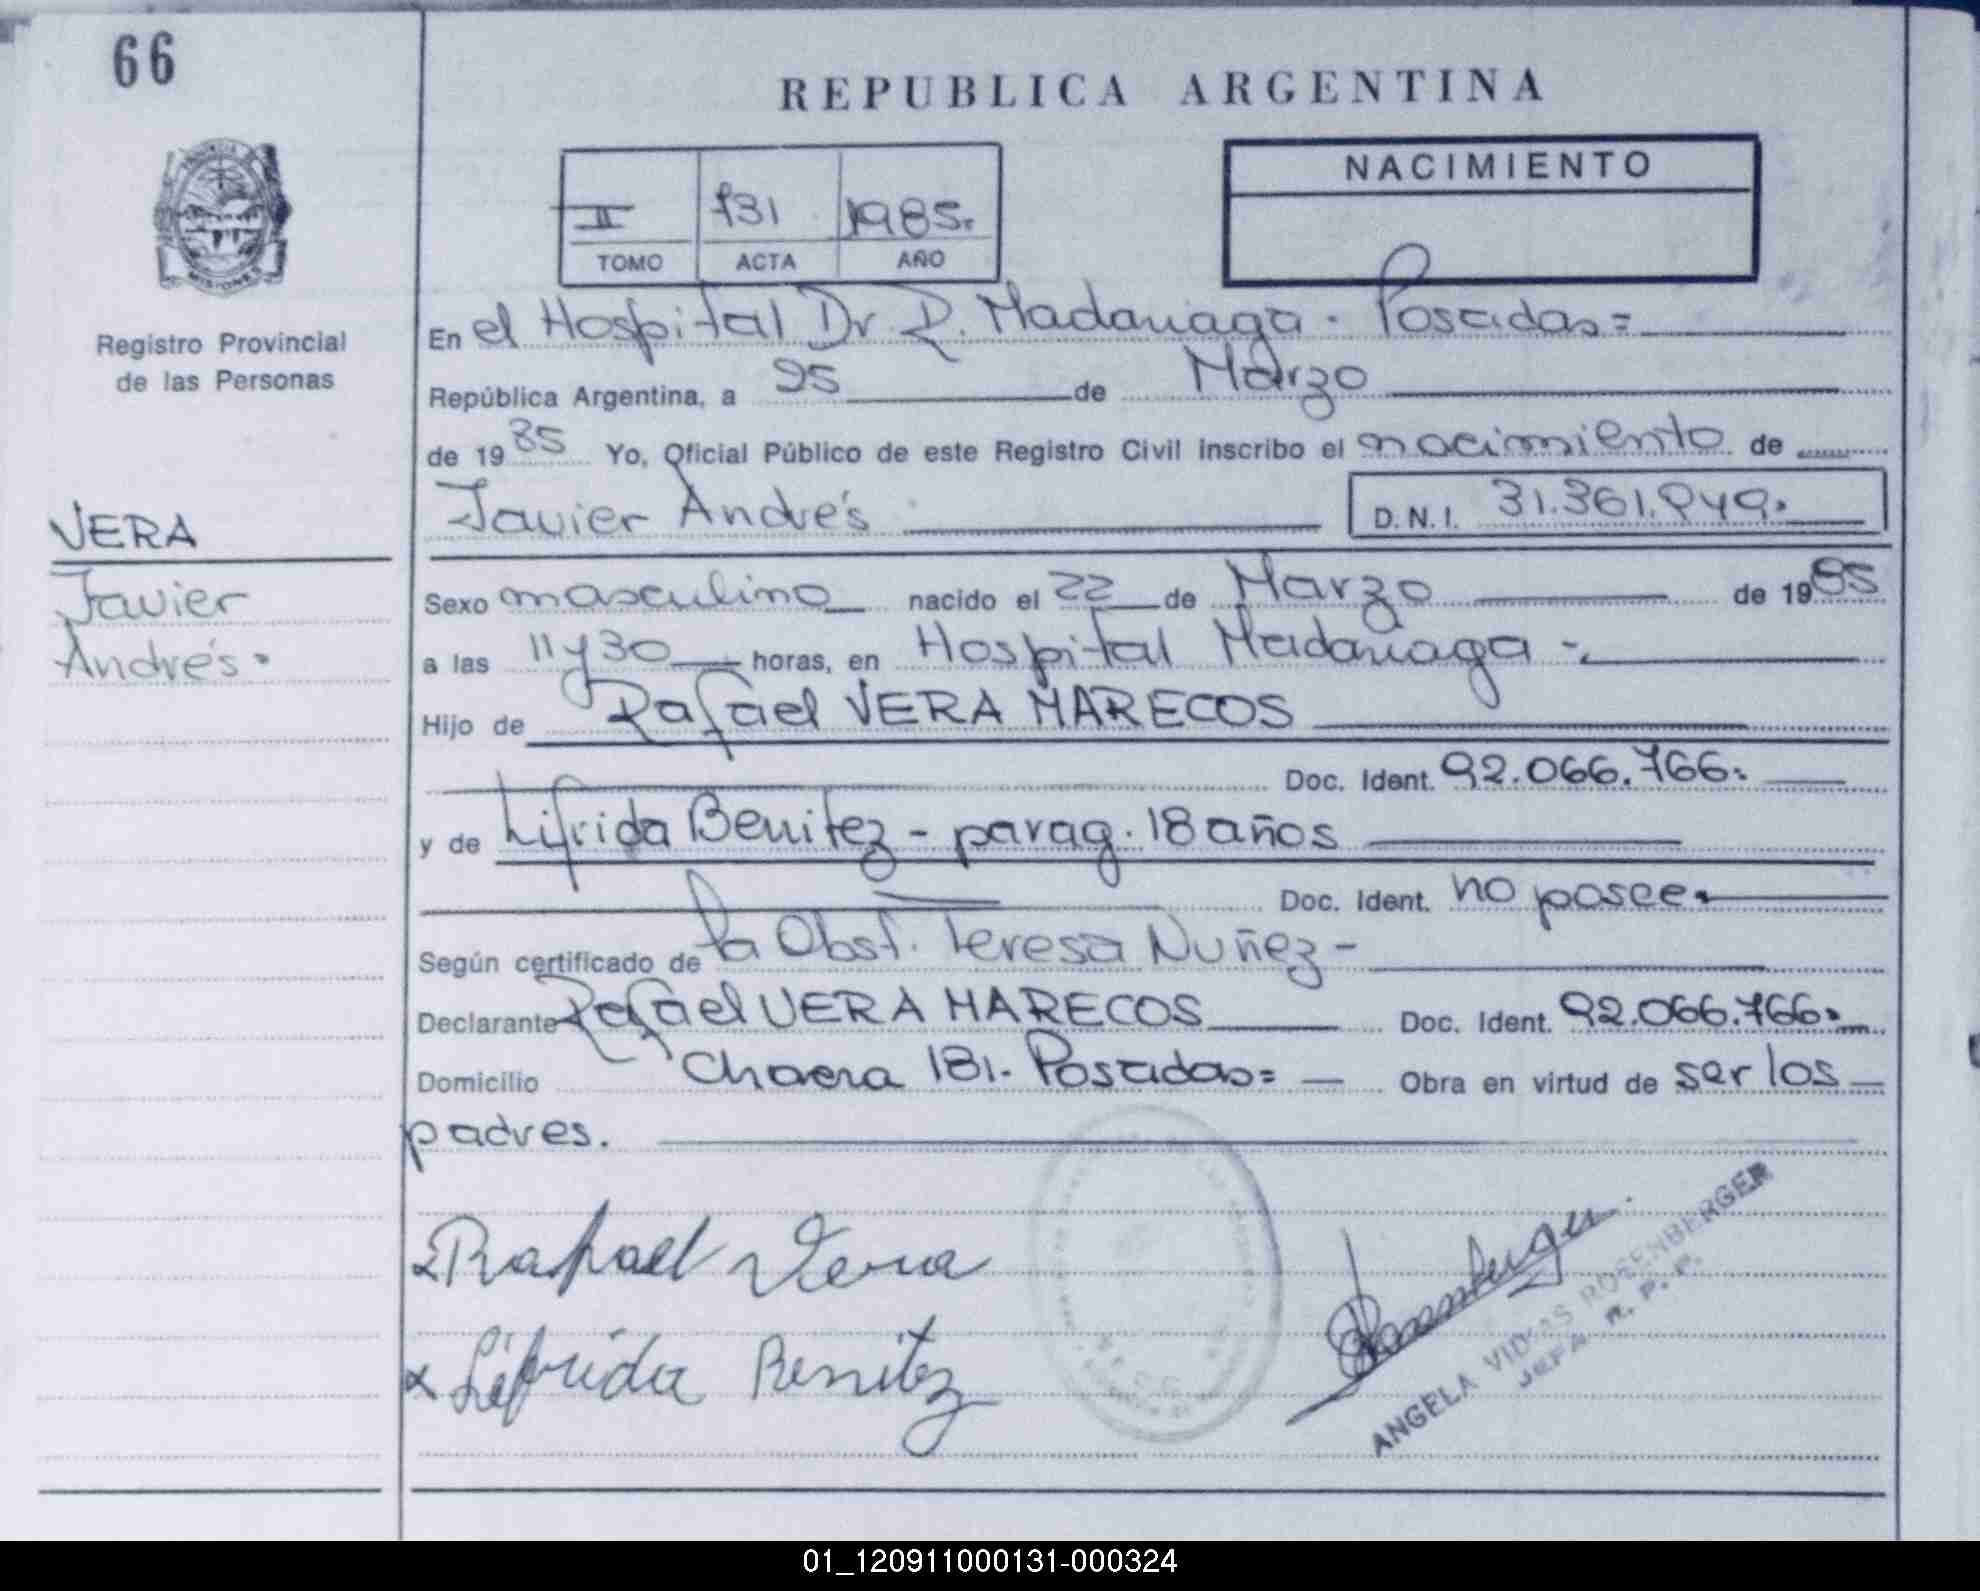 66
REPUBLICA ARGENTINA
NACIMIENTO
II 731 1985.
TOMO ACTA AÑO
Registro Provincial
de las Personas
VERA
Javier
Andrés.
En el Hospital Dr. R. Madariaga. Posadas=
República Argentina, a 25 de Marzo
de 1985 Yo, Oficial Público de este Registro Civil inscribo el nacimiento de
Javier Andrés D.N.I. 31.361.949.
Sexo masculino nacido el 22 de Marzo de 1985
a las 11 y 30 horas, en Hospital Madariaga -.
Hijo de Rafael VERA MARECOS
Doc. Ident. 92.066.766.
y de Lifrida Benitez - parag. 18 años
Doc. Ident. no posee.
Según certificado de la Obst. Teresa Nuñez -
Declarante Rafael VERA MARECOS Doc. Ident. 92.066.766.
Domicilio Chacra 181. Posadas= Obra en virtud de ser los
padres.
Raphael Vera
Lifrida Benitez
ANGELA VIDAS ROSENBERGER
JEFA R. P. P.
01_120911000131-000324